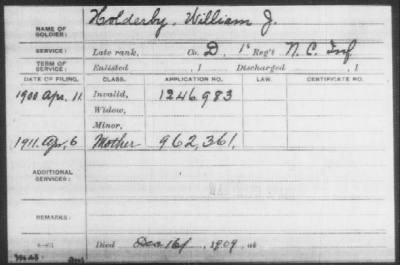 NAME OF SOLDIER: Holderby, William J.
SERVICE: Late rank, Co. D, 1st Reg't N.C. Inf
TERM OF SERVICE: Enlisted , 1 Discharged , 1
DATE OF FILING. CLASS. APPLICATION NO. LAW. CERTIFICATE NO.
1900 Apr. 11 Invalid, 1246983
Widow,
Minor,
1911. Apr, 6 Mother 962,361,
ADDITIONAL SERVICES:
REMARKS:
Died Dec 16, 1909, at